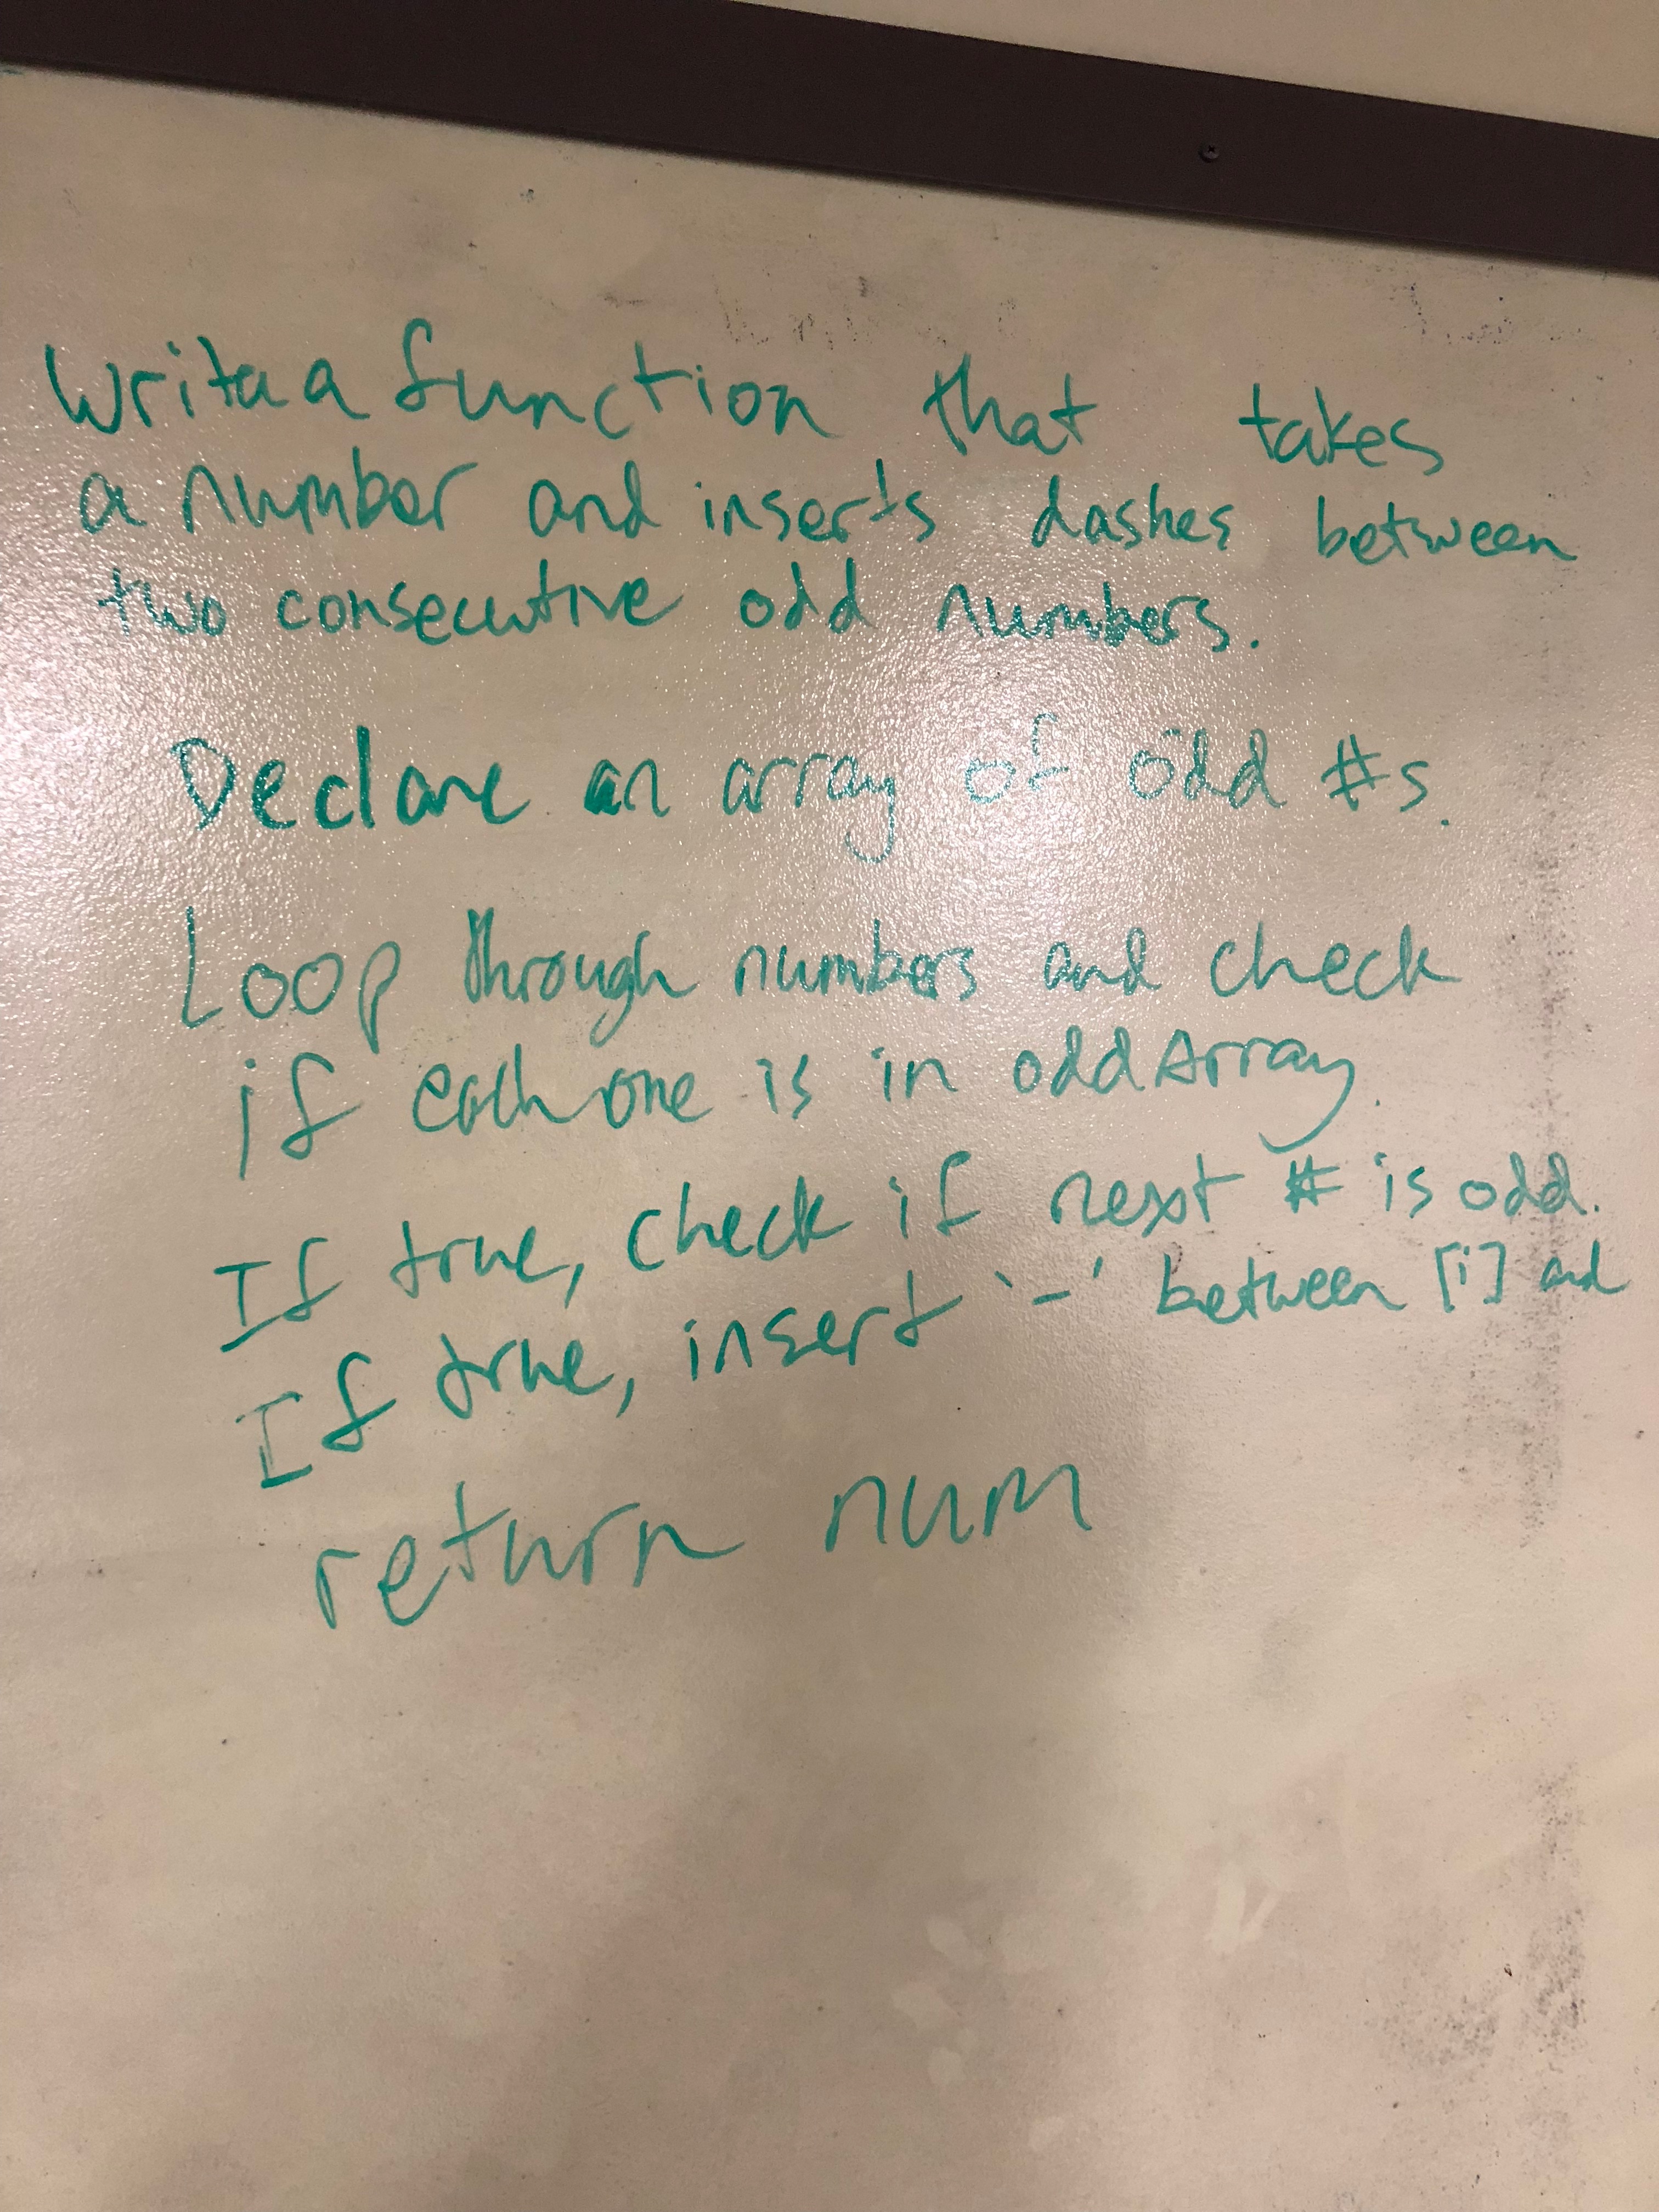 Write a function that takes
a number and inserts dashes between
two consecutive odd numbers.
Declare an array of odd #s.
Loop through numbers and check
if each one is in oddArray.
If true, check if next # is odd.
If true, insert '-' between [i] and
return num